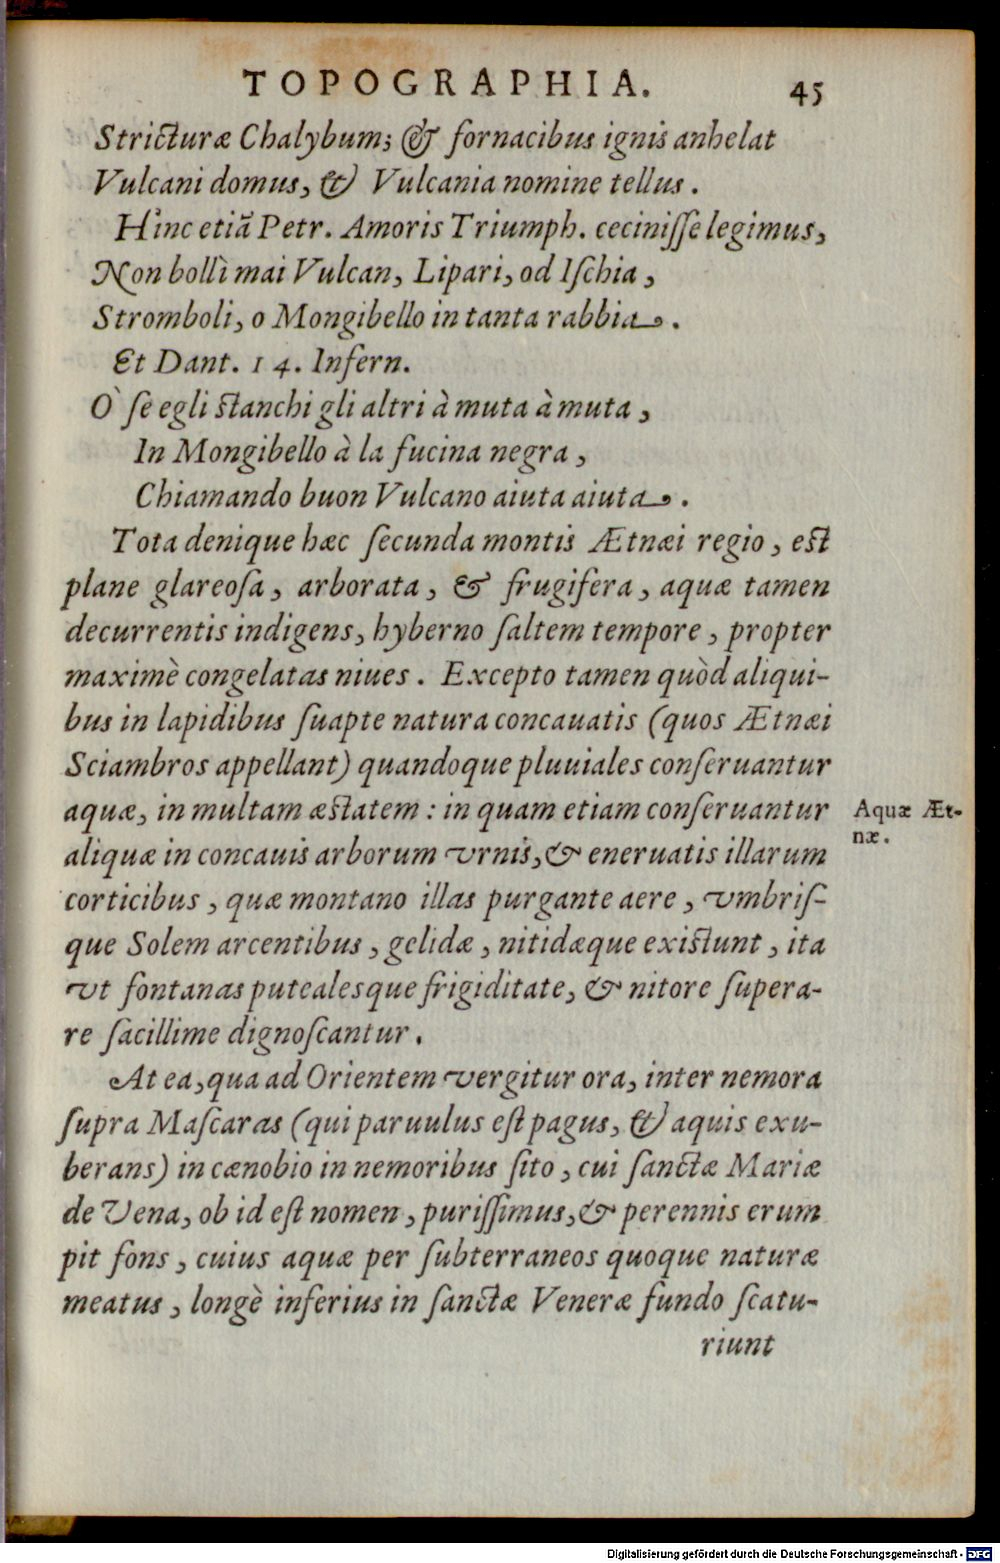 TOPOGRAPHIA. 45
Stricturæ Chalybum; & fornacibus ignis anhelat
Vulcani domus, & Vulcania nomine tellus.
Hinc etiã Petr. Amoris Triumph. ceciniſſe legimus,
Non bollì mai Vulcan, Lipari, od Iſchia,
Stromboli, o Mongibello in tanta rabbia.
Et Dant. 14. Infern.
Ò ſe egli ſtanchi gli altri à muta à muta,
In Mongibello à la fucina negra,
Chiamando buon Vulcano aiuta aiuta.
Tota denique hæc ſecunda montis Ætnæi regio, eſt
plane glareoſa, arborata, & frugifera, aquæ tamen
decurrentis indigens, hyberno ſaltem tempore, propter
maximè congelatas niues. Excepto tamen quòd aliqui-
bus in lapidibus ſuapte natura concauatis (quos Ætnæi
Sciambros appellant) quandoque pluuiales conſeruantur
aquæ, in multam æſtatem: in quam etiam conſeruantur
Aquæ Æt-
næ.
aliquæ in concauis arborum vrnis, & eneruatis illarum
corticibus, quæ montano illas purgante aere, vmbriſ-
que Solem arcentibus, gelidæ, nitidæque exiſtunt, ita
vt fontanas putealesque frigiditate, & nitore ſupera-
re facillime dignoſcantur.
At ea, qua ad Orientem vergitur ora, inter nemora
ſupra Maſcaras (qui paruulus eſt pagus, & aquis exu-
berans) in cænobio in nemoribus ſito, cui ſanctæ Mariæ
de Vena, ob id eſt nomen, puriſſimus, & perennis erum
pit fons, cuius aquæ per ſubterraneos quoque naturæ
meatus, longè inferius in ſanctæ Veneræ fundo ſcatu-
riunt
Digitalisierung gefördert durch die Deutsche Forschungsgemeinschaft - DFG